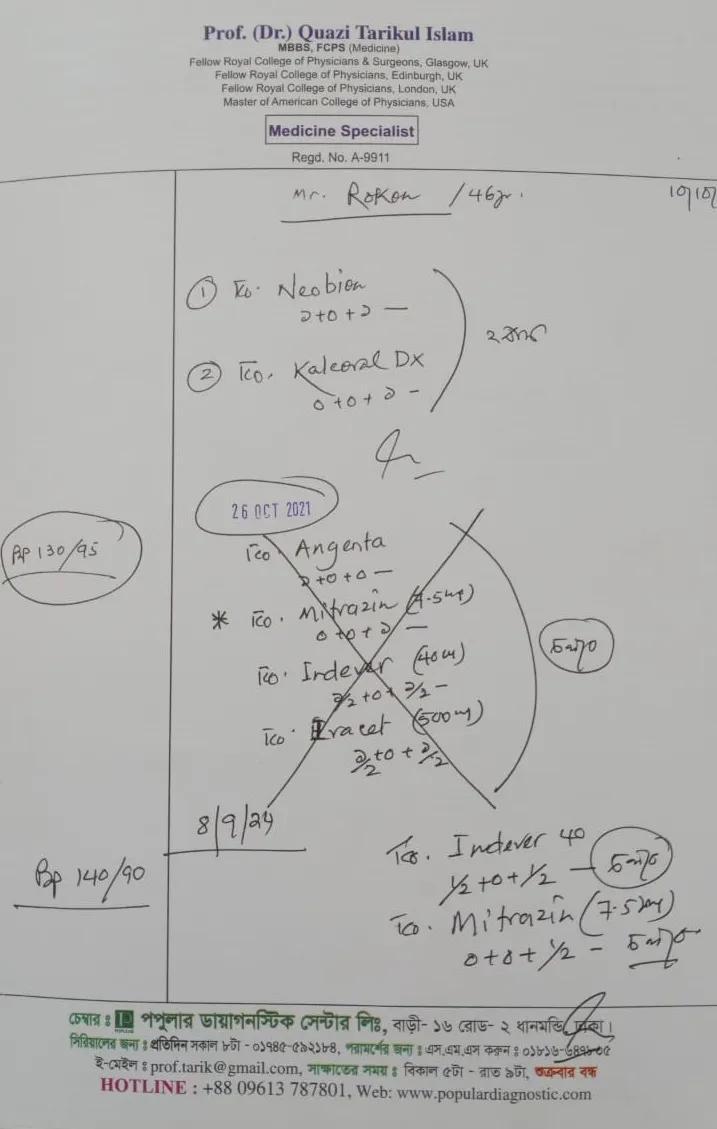 Prof. (Dr.) Quazi Tarikul Islam
MBBS, FCPS (Medicine)
Fellow Royal College of Physicians & Surgeons, Glasgow, UK
Fellow Royal College of Physicians, Edinburgh, UK
Fellow Royal College of Physicians, London, UK
Master of American College of Physicians, USA
Medicine Specialist
Regd. No. A-9911
Mr. Rokon / 46yr.
① Tab. Neobion
১+০+১ —
② Tab. Kalcoral DX
০+০+১ -
২ মাস
26 OCT 2021
BP 130/95
Angenta
১+০+০ —
* Mitrazin (7.5mg)
০+০+১ —
Indever (40mg)
১/২+০+১/২ -
Iracet (500mg)
১/২+০+১/২
চলবে
8/9/24
BP 140/90
Tab. Indever 40
1/2+0+1/2 - চলবে
Mitrazin (7.5mg)
0+0+1/2 - চলবে
চেম্বার ঃ পপুলার ডায়াগনস্টিক সেন্টার লিঃ, বাড়ী- ১৬ রোড- ২ ধানমন্ডি, ঢাকা।
সিরিয়ালের জন্য ঃ প্রতিদিন সকাল ৮টা - ০১৭৪৫-৫৯২১৮৪, পরামর্শের জন্য ঃ এস.এম.এস করুন ঃ
ই-মেইল ঃ prof.tarik@gmail.com, সাক্ষাতের সময় ঃ বিকাল ৫টা - রাত ৯টা, শুক্রবার বন্ধ
HOTLINE : +88 09613 787801, Web: www.populardiagnostic.com